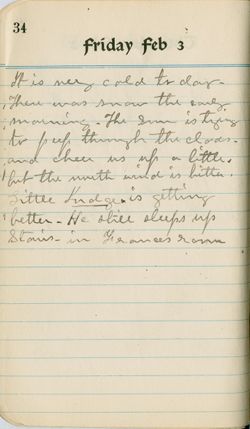 34
Friday Feb 3
It is very cold to day
There was snow the early
morning. The Sun is trying
to peep through the clouds.
and cheer us up a little.
but the north wind is bitter.
Little Pudge is getting
better. He still sleeps up
Stairs in Frances room